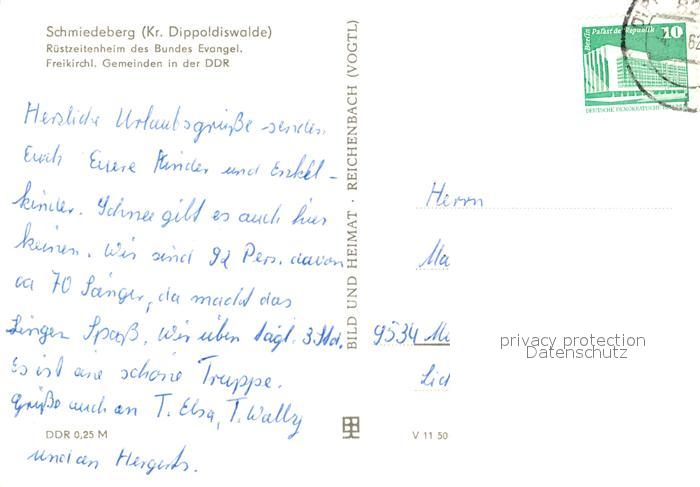 Schmiedeberg (Kr. Dippoldiswalde)
Rüstzeitenheim des Bundes Evangel.
Freikirchl. Gemeinden in der DDR
Herzliche Urlaubsgrüße senden
Euch Euere Kinder und Enkel-
kinder. Schnee gibt es auch hier
keinen. Wir sind 92 Pers. davon
ca 70 Sänger, da macht das
Singen Spaß. Wir üben tägl. 3 Std.
Es ist eine schöne Truppe.
Grüße auch an T. Elsa, T. Wally
und an Hergerts.
DDR 0,25 M
BILD UND HEIMAT · REICHENBACH (VOGTL)
V 11 50
Berlin Palast der Republik 10
DEUTSCHE DEMOKRATISCHE
62
Herrn
Ma
9534 Mi
privacy protection
Datenschutz